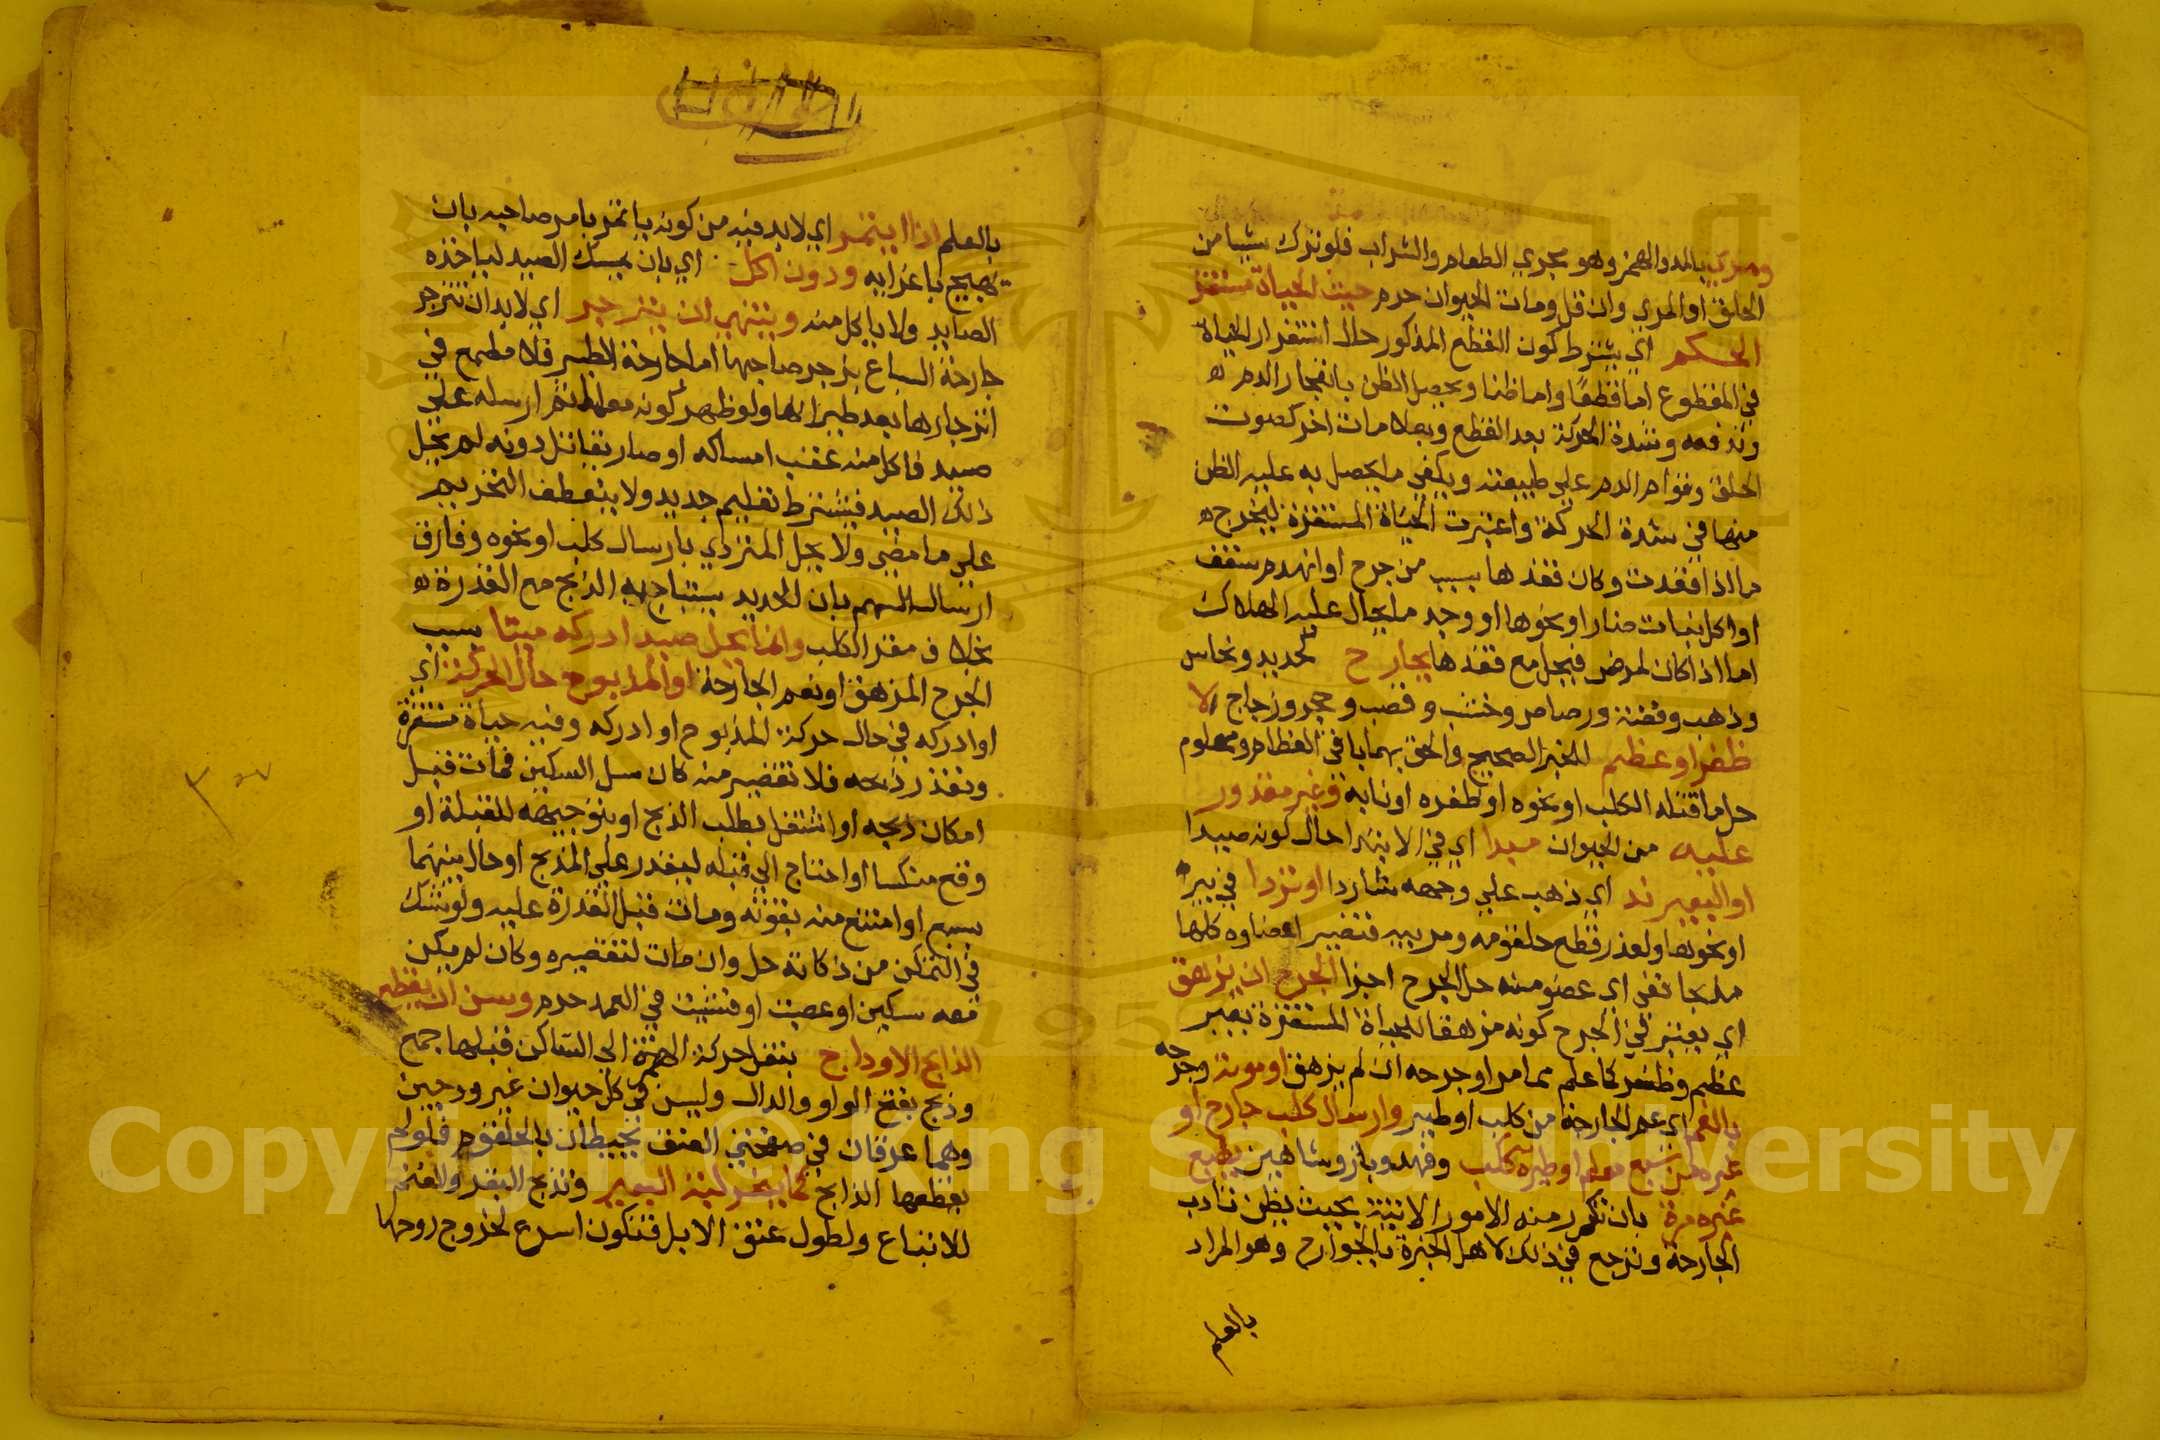 ومري بالمد والهمز وهو مجري الطعام والشراب فلو ترك شيا من
الحلق او المري وان قل ومات الحيوان حرم حيث الحياة مستقر
الحكم اي يشترط كون القطع المذكور حال استقرار الحياة
في المقطوع اما قطعا واما ظنا ويحصل الظن بانفجار الدم
وتدفعه وشدة الحركة بعد القطع وبعلامات اخر كصوت
الحلق وقوام الدم علي طبيعته ويكفي ما يحصل به عليه الظن
منها في شدة الحركة واعتبرت الحياة المستقرة ليخرج
ما اذا فقدت وكان فقدها بسبب من جرح او انهدم سقف
او اكل نبات ضار او نحوها او وجد ما يحال عليه الهلاك
اما اذا كان لمرض فيحل مع فقدها بجارح كحديد ونحاس
وذهب وفضة ورصاص وخشب وقصب وحجر وزجاج الا
ظفر او عظم للخبر الصحيح والحق بهما باقي العظام ومعلوم
حل ما قتله الكلب او نحوه او ظفره او نابه وغير مقدور
عليه من الحيوان صيدا اي في الابتدا حال كونه صيدا
او البعير ند اي ذهب علي وجهه شاردا او تردا في بير
او نحوها ولعذر قطع حلقومه ومريه فتصير اعضاوه كلها
ملجا ففي اي عضو منه حل الجرح اجزا الجرح ان يزهق
اي يعتبر في الجرح كونه مزهقا للحياة المستقرة بغير
عظم وظفر كما علم مما مر او جرحه ان لم يزهق او موته وجرحه
بالغم اي عم الجارحة من كلب او طير وارسال كلب جارح او
غيره من سبع معلم او طيره كلب وفهد وباز وشاهين يطيع
غيره مرة بان تكرر منه الامور الاتية بحيث يظن تادب
الجارحة ونرجع في ذلك لاهل الخبرة بالجوارح وهو المراد
بالعلم
بالعلم اذا ايتمر اي لابد فيه من كونه ياتمر بامر صاحبه بان
تهييج باغرايه ودون اكل اي بان يمسك الصيد لياخذه
الصايد ولا ياكل منه وينتهي ان ينزجر اي لابد ان تنزجر
جارحة السباع بزجر صاحبها اما جارحة الطير فلا مطمع في
انزجارها بعد طيرانها ولو ظهر كونه معلما ثم ارسله علي
صيد فاكل منه عقب امساكه او صار يقاتل دونه لم يحل
ذلك الصيد فيشترط تعليم جديد ولا ينعطف التحريم
علي ما مضي ولا يحل المتردي بارسال كلب او نحوه وفارق
ارسال السهم بان الحديد يستباح به الذبح مع القدرة
بخلاف عقر الكلب وانما يحل صيد ادركه ميتا بسبب
الجرح المزهق او بغم الجارحة او المذبوح حال الحركة اي
او ادركه في حال حركة المذبوح او ادركه وفيه حياة مستقرة
وتعذر ذبحه فلا تقصير منه كان سل السكين فمات قبل
امكان ذبحه او اشتغل بطلب الذبح او بتوجيهه للقبلة او
وقع منكسا او احتاج الي قبله ليقدر علي المذبح او حال بينهما
سبع او امتنع منه بقوته ومات قبل القدرة عليه ولو شك
في التمكن من ذكاته حل وان مات لتقصيره وكان لم يكن
معه سكين او غصبت او نشبت في الغمد حرم وسن ان يقطع
الذابح الاوداج بنقل حركة الهمزة الي الساكن قبلها جمع
ودج بفتح الواو والدال وليس في كل حيوان غير ودجين
وهما عرقان في صفحتي العنق يحيطان بالحلقوم فلو لم
يقطعها الذابح كما ينحر لبة البعير وتذبح البقر والغنم
للاتباع ولطول عنق الابل فتكون اسرع لخروج روحها
Copyright © King Saud University
1957